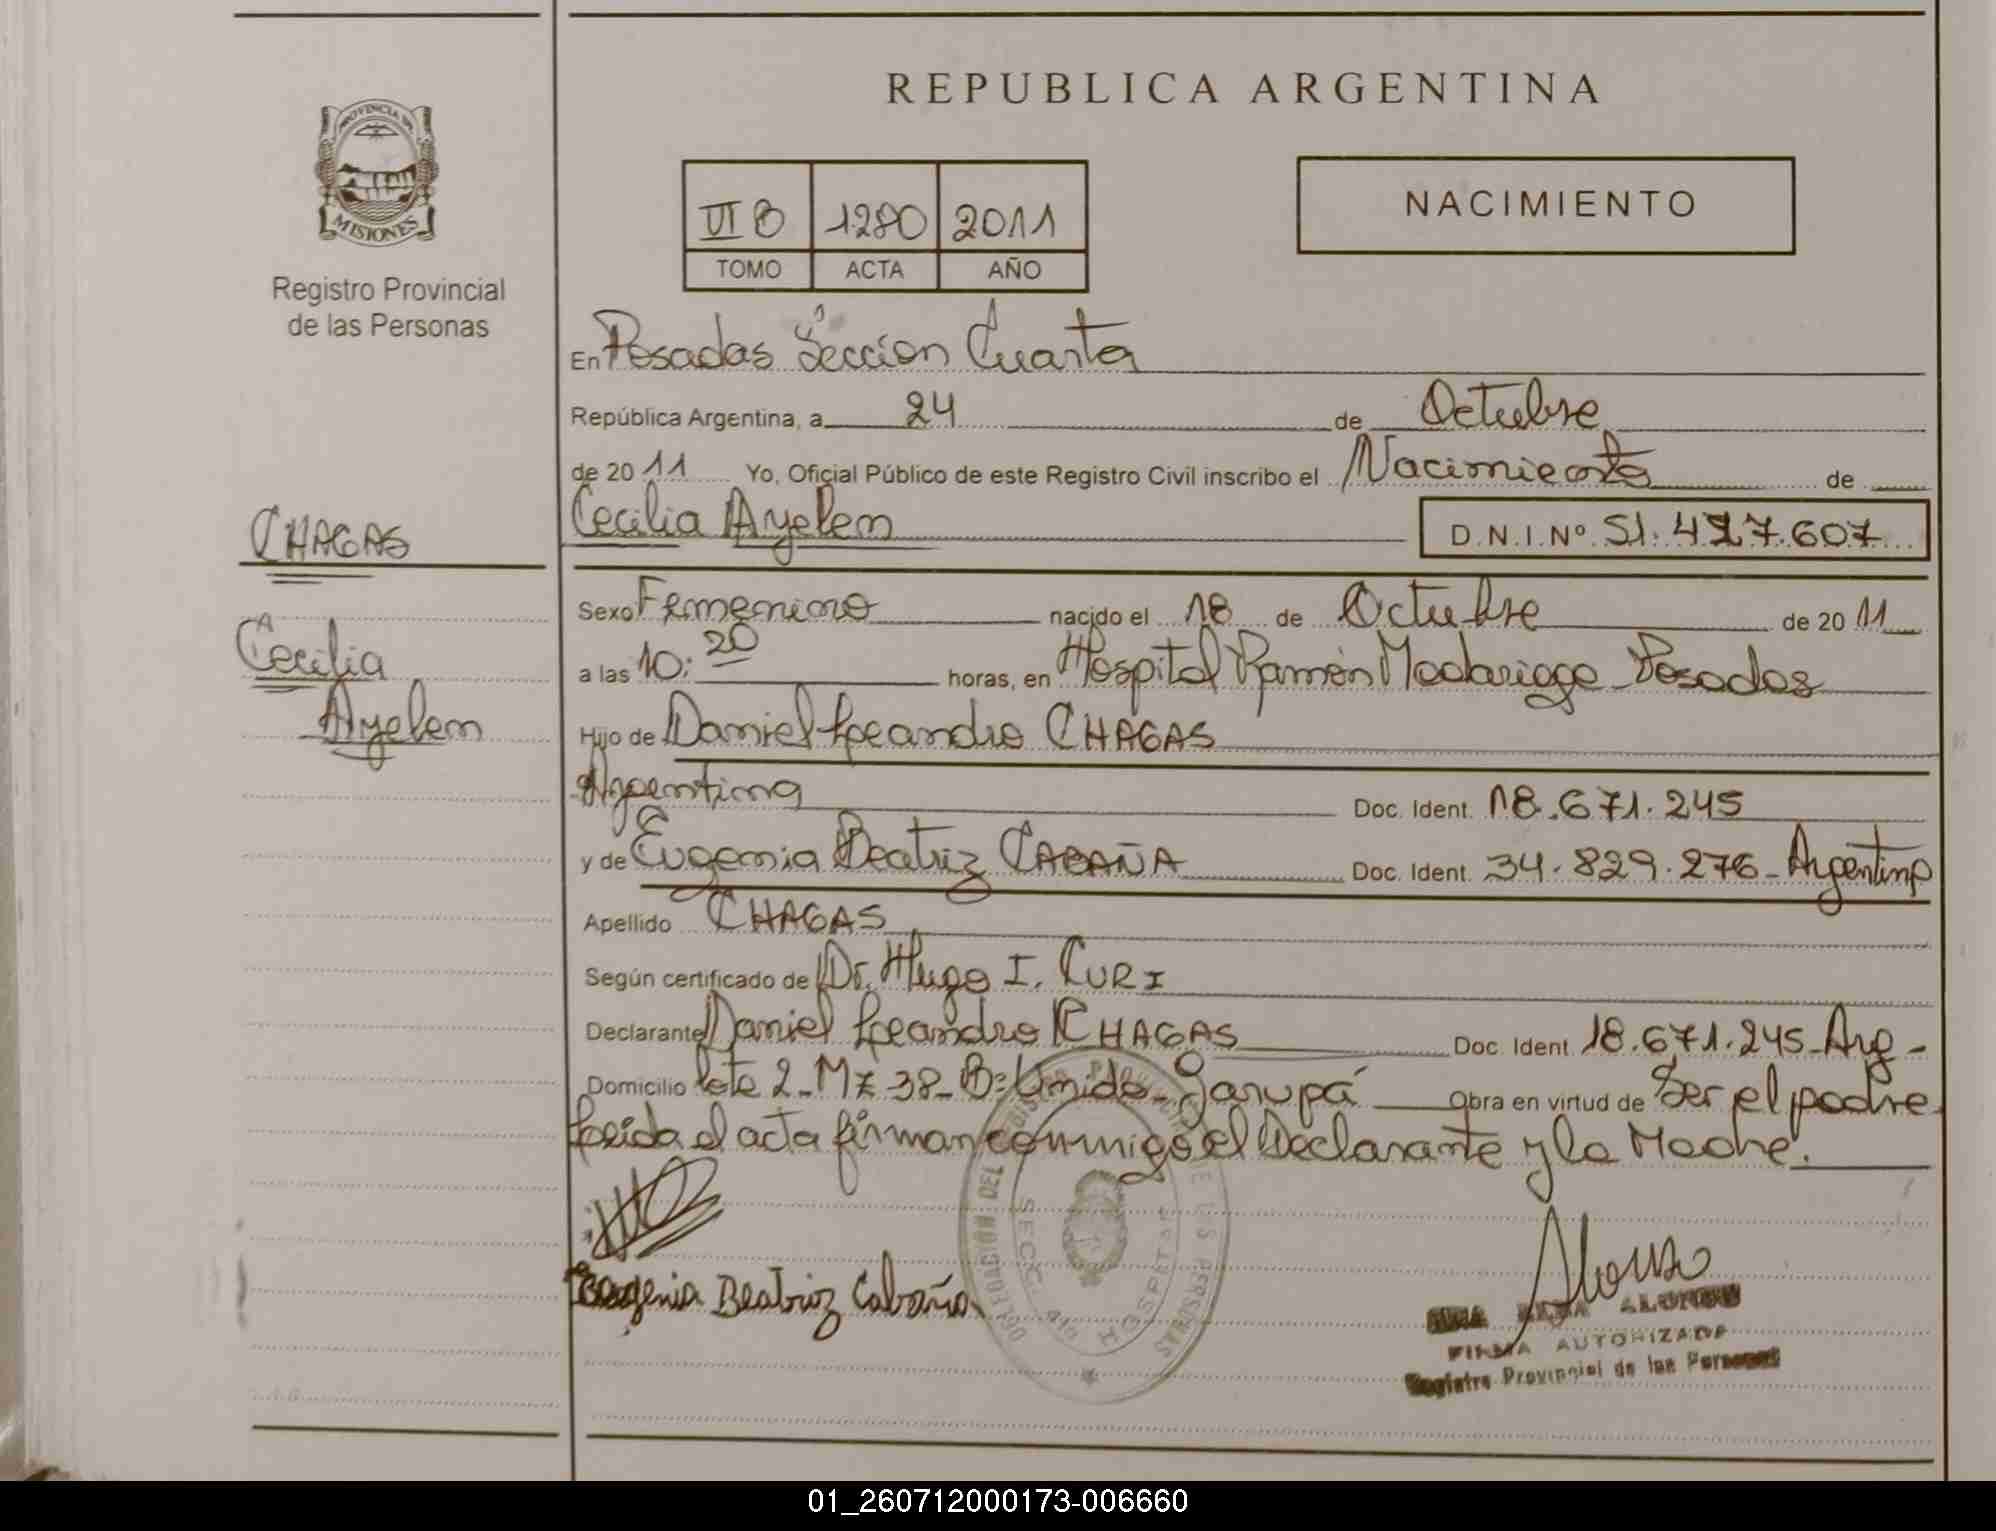 REPUBLICA ARGENTINA
PROVINCIA DE
MISIONES
Registro Provincial
de las Personas
VI B 1280 2011
TOMO ACTA AÑO
NACIMIENTO
En Posadas Sección Cuarta
República Argentina, a 24 de Octubre
de 2011 Yo, Oficial Público de este Registro Civil inscribo el Nacimiento de
Cecilia Ayelem
D.N.I. Nº 51.427.607
CHAGAS
Cecilia
Ayelem
Sexo Femenino nacido el 18 de Octubre de 2011
a las 10:20 horas, en Hospital Ramón Madariaga - Posadas
Hijo de Daniel Leandro CHAGAS
Argentina Doc. Ident. 18.671.245
y de Eugenia Beatriz CABAÑA Doc. Ident. 34.829.276 - Argentina
Apellido CHAGAS
Según certificado de Dr. Hugo I. CURI
Declarante Daniel Leandro CHAGAS Doc. Ident. 18.671.245 - Arg -
Domicilio Lote 2 - Mz 38 - Bº Unido - Garupá Obra en virtud de Ser el padre
Leida el acta firman conmigo el Declarante y la Madre.
DELEGACIÓN DEL REGISTRO PROVINCIAL DE LAS PERSONAS
SECC. 4ta HOSPITAL
Eugenia Beatriz Cabaña
ALONSO
FIRMA AUTORIZADA
Registro Provincial de las Personas
01_260712000173-006660